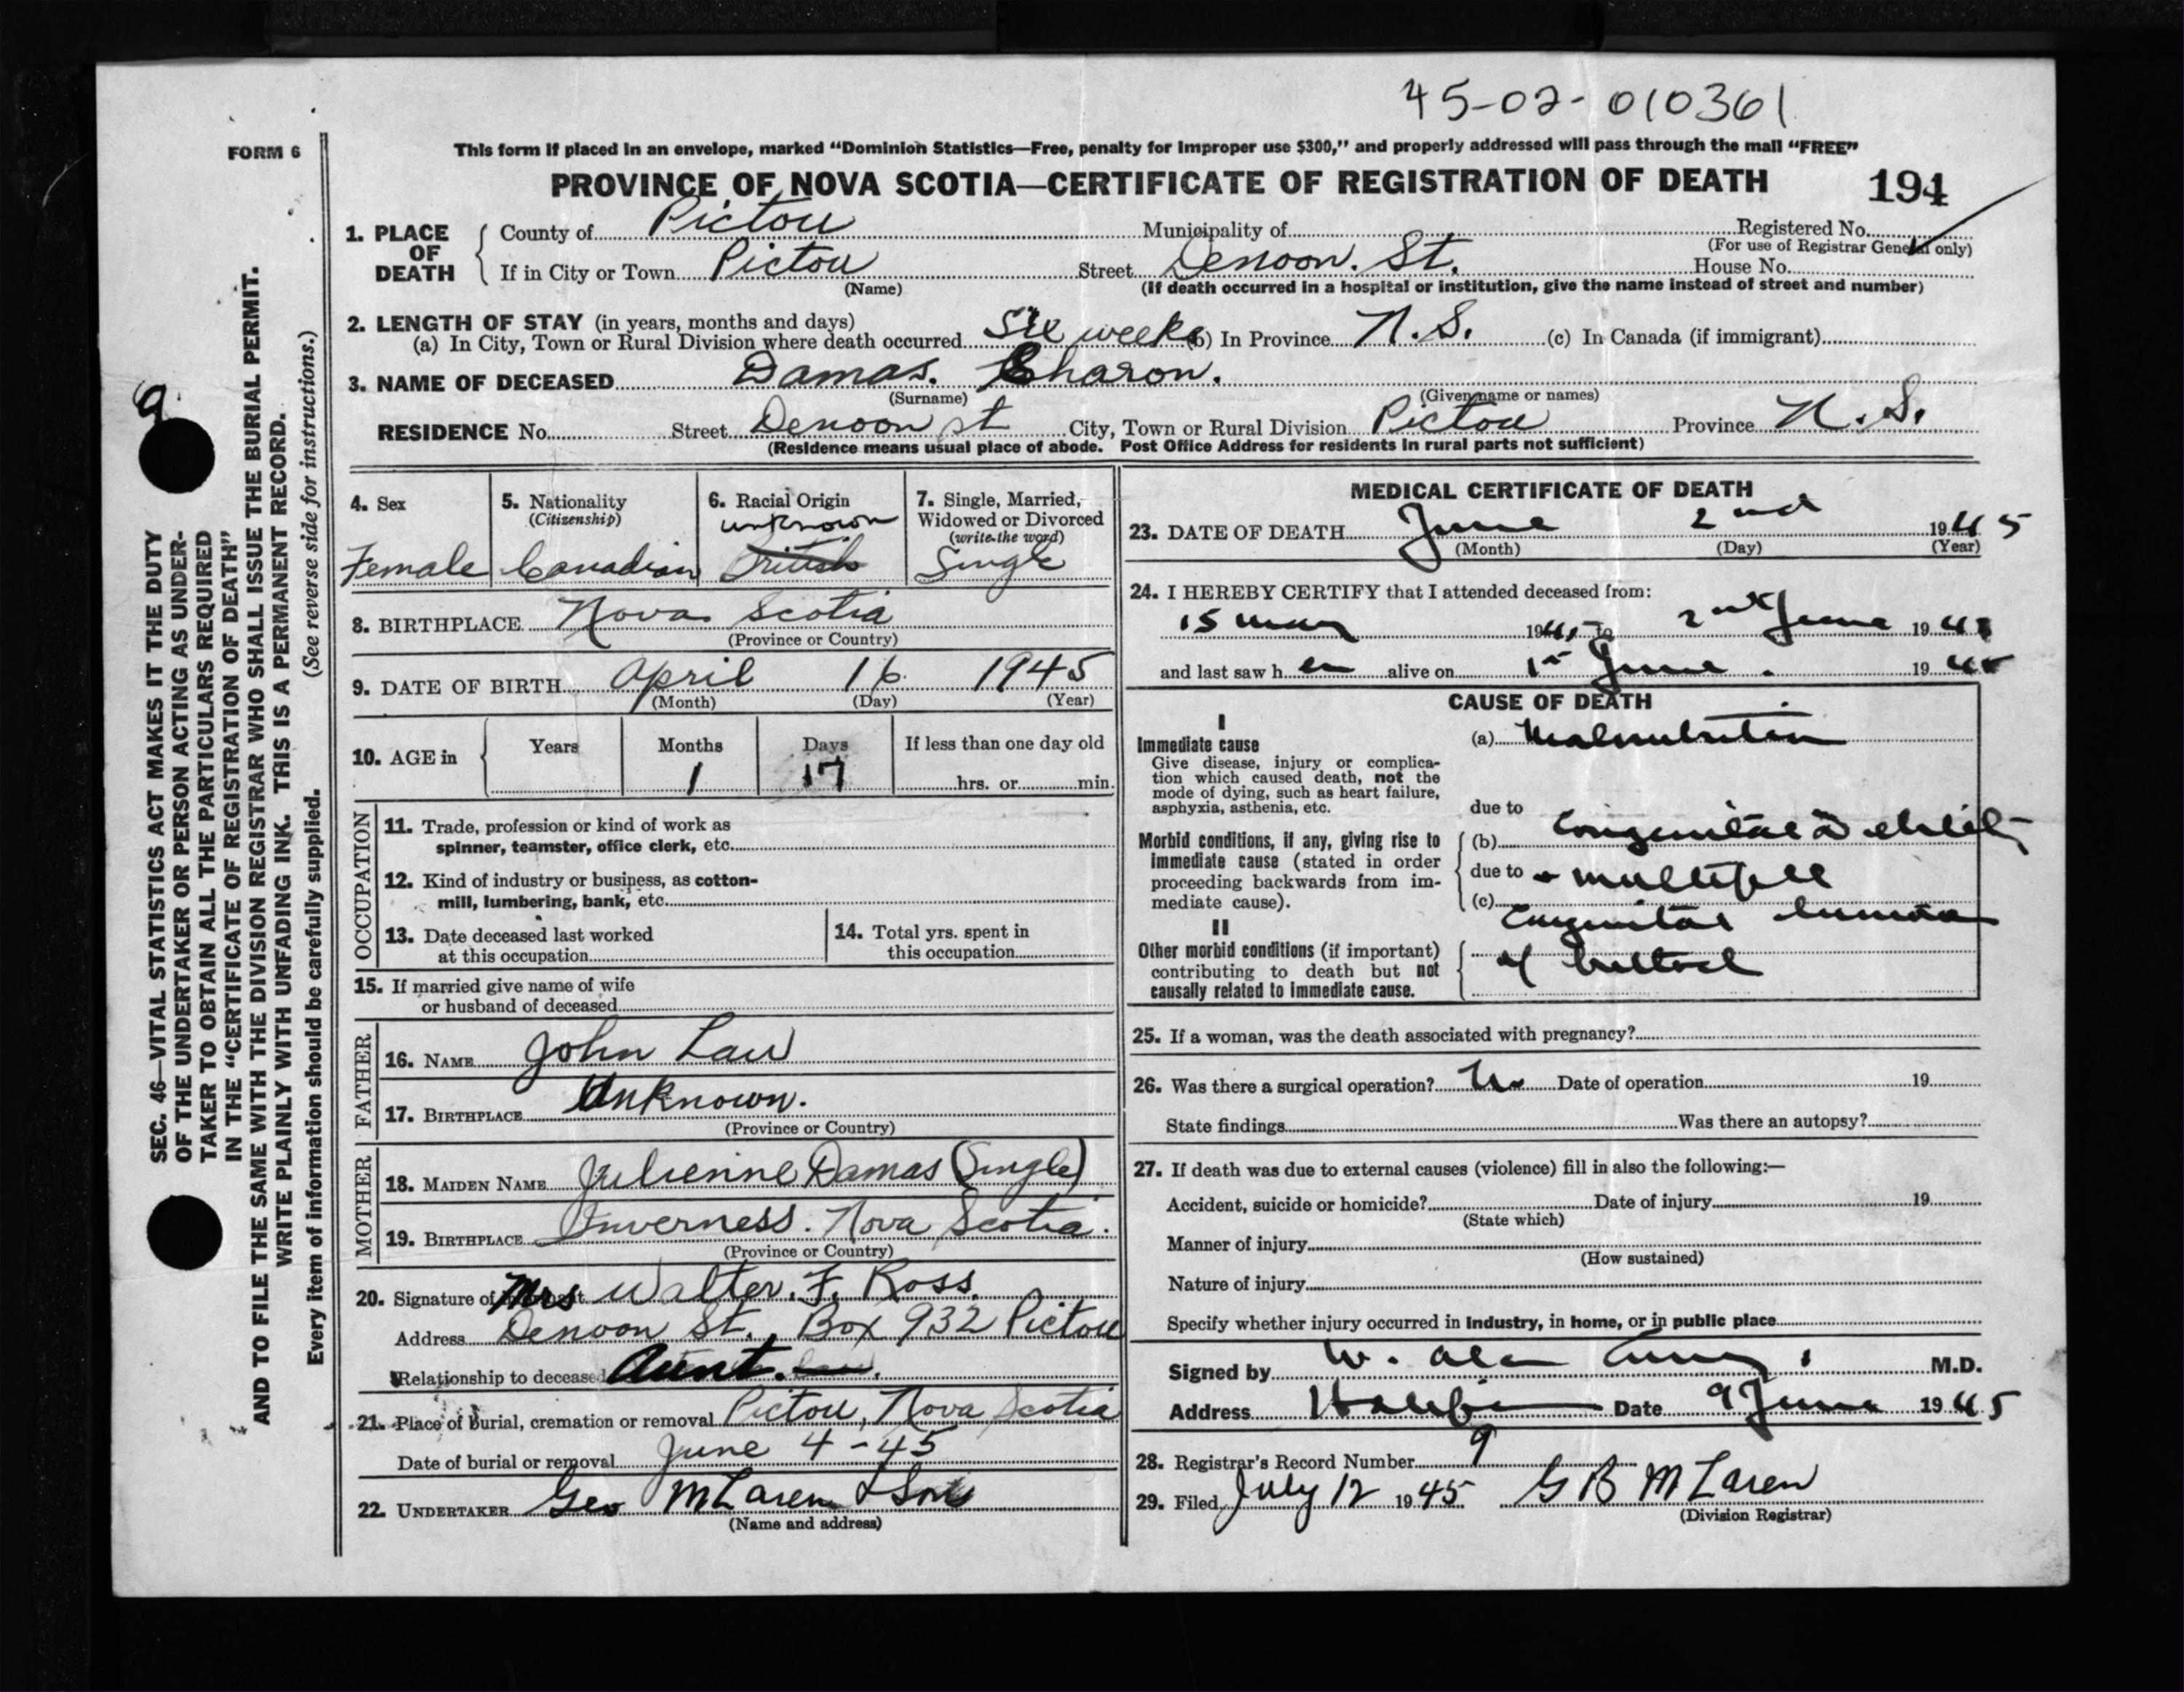 45-02-010361
FORM 6
This form if placed in an envelope, marked “Dominion Statistics—Free, penalty for improper use $300,” and properly addressed will pass through the mail “FREE”
PROVINCE OF NOVA SCOTIA—CERTIFICATE OF REGISTRATION OF DEATH 194
1. PLACE OF DEATH
County of Pictou Municipality of Registered No.
(For use of Registrar General only)
If in City or Town Pictou Street Denoon. St. House No.
(Name) (If death occurred in a hospital or institution, give the name instead of street and number)
2. LENGTH OF STAY (in years, months and days)
(a) In City, Town or Rural Division where death occurred Six weeks (b) In Province N.S. (c) In Canada (if immigrant)
3. NAME OF DECEASED Damas. Sharon.
(Surname) (Given name or names)
RESIDENCE No. Street Denoon st City, Town or Rural Division Pictou Province N.S.
(Residence means usual place of abode. Post Office Address for residents in rural parts not sufficient)
4. Sex
Female
5. Nationality
(Citizenship)
Canadian
6. Racial Origin
unknown
British
7. Single, Married,
Widowed or Divorced
(write the word)
Single
8. BIRTHPLACE Nova Scotia
(Province or Country)
9. DATE OF BIRTH April 16 1945
(Month) (Day) (Year)
10. AGE in Years Months Days If less than one day old
1 17 hrs. or min.
OCCUPATION
11. Trade, profession or kind of work as
spinner, teamster, office clerk, etc.
12. Kind of industry or business, as cotton-
mill, lumbering, bank, etc.
13. Date deceased last worked
at this occupation
14. Total yrs. spent in
this occupation
15. If married give name of wife
or husband of deceased
FATHER
16. NAME John Law
17. BIRTHPLACE Unknown.
(Province or Country)
MOTHER
18. MAIDEN NAME Julienne Damas (Single)
19. BIRTHPLACE Inverness. Nova Scotia.
(Province or Country)
20. Signature of Mrs Walter. F. Ross.
Address Denoon St., Box 932 Pictou
Relationship to deceased Aunt.
21. Place of burial, cremation or removal Pictou, Nova Scotia
Date of burial or removal June 4-45
22. UNDERTAKER Geo McLaren & Sons
(Name and address)
MEDICAL CERTIFICATE OF DEATH
23. DATE OF DEATH June 2nd 1945
(Month) (Day) (Year)
24. I HEREBY CERTIFY that I attended deceased from:
15 May 1945 to 2nd June 1945
and last saw her alive on 1st June. 1945
CAUSE OF DEATH
I
Immediate cause
Give disease, injury or complica-
tion which caused death, not the
mode of dying, such as heart failure,
asphyxia, asthenia, etc.
(a) Malnutrition
due to
Morbid conditions, if any, giving rise to
immediate cause (stated in order
proceeding backwards from im-
mediate cause).
(b) Congenital Debility
due to & multiple
(c) Congenital tumors
II
Other morbid conditions (if important)
contributing to death but not
causally related to immediate cause.
of buttock
25. If a woman, was the death associated with pregnancy?
26. Was there a surgical operation? No Date of operation 19
State findings Was there an autopsy?
27. If death was due to external causes (violence) fill in also the following:—
Accident, suicide or homicide? Date of injury 19
(State which)
Manner of injury
(How sustained)
Nature of injury
Specify whether injury occurred in industry, in home, or in public place
Signed by W. Alan M.D.
Address Halifax Date 9 June 1945
28. Registrar's Record Number 9
29. Filed July 12 1945 G B McLaren
(Division Registrar)
9
SEC. 46—VITAL STATISTICS ACT MAKES IT THE DUTY
OF THE UNDERTAKER OR PERSON ACTING AS UNDER-
TAKER TO OBTAIN ALL THE PARTICULARS REQUIRED
IN THE “CERTIFICATE OF REGISTRATION OF DEATH”
AND TO FILE THE SAME WITH THE DIVISION REGISTRAR WHO SHALL ISSUE THE BURIAL PERMIT.
WRITE PLAINLY WITH UNFADING INK. THIS IS A PERMANENT RECORD.
Every item of information should be carefully supplied. (See reverse side for instructions.)